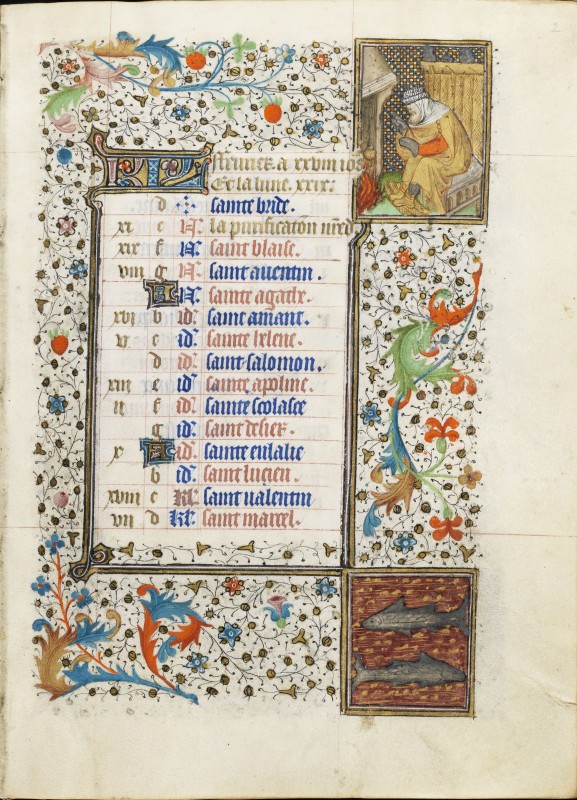 2
KL feurier a xxviii iors
Et la lune. xxix.
d sainte bride.
xi e N. la purificaton nred.
xix f N. saint blaise.
viii g N. saint auentin.
A N. sainte agathe.
xvi b id. saint amant.
v c id. sainte helene.
d id. saint salomon.
xiii e id. sainte apoline.
ii f id. sainte scolasce
g id. saint desier.
x A id. sainte eulalie
b id. saint lucien.
xviii c kl. saint ualentin
vii d kl. saint marcel.